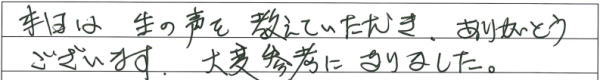 本日は 生の声を 教えていただき、ありがとう
ございます。大変参考になりました。